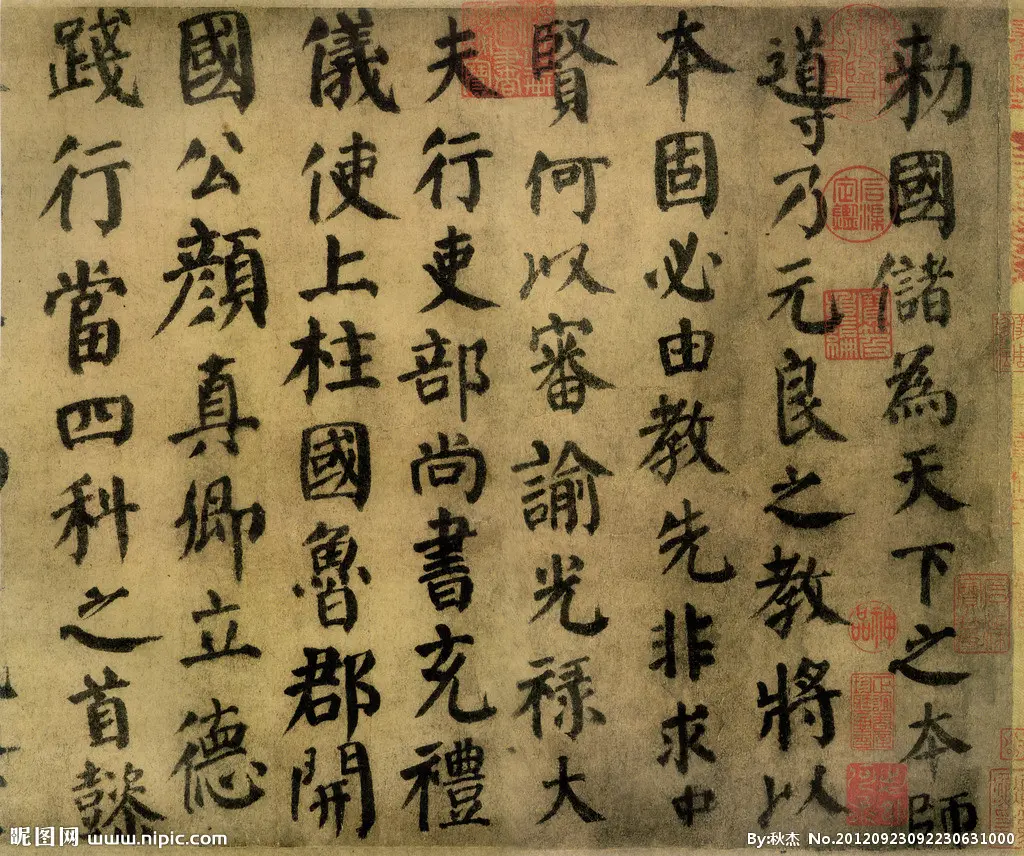 勅國儲為天下之本師
導乃元良之教將以
本固必由教先非求中
賢何以審諭光祿大
夫行吏部尚書充禮
儀使上柱國魯郡開
國公顏真卿立德
踐行當四科之首懿
昵图网 www.nipic.com
By:秋杰 No.20120923092230631000